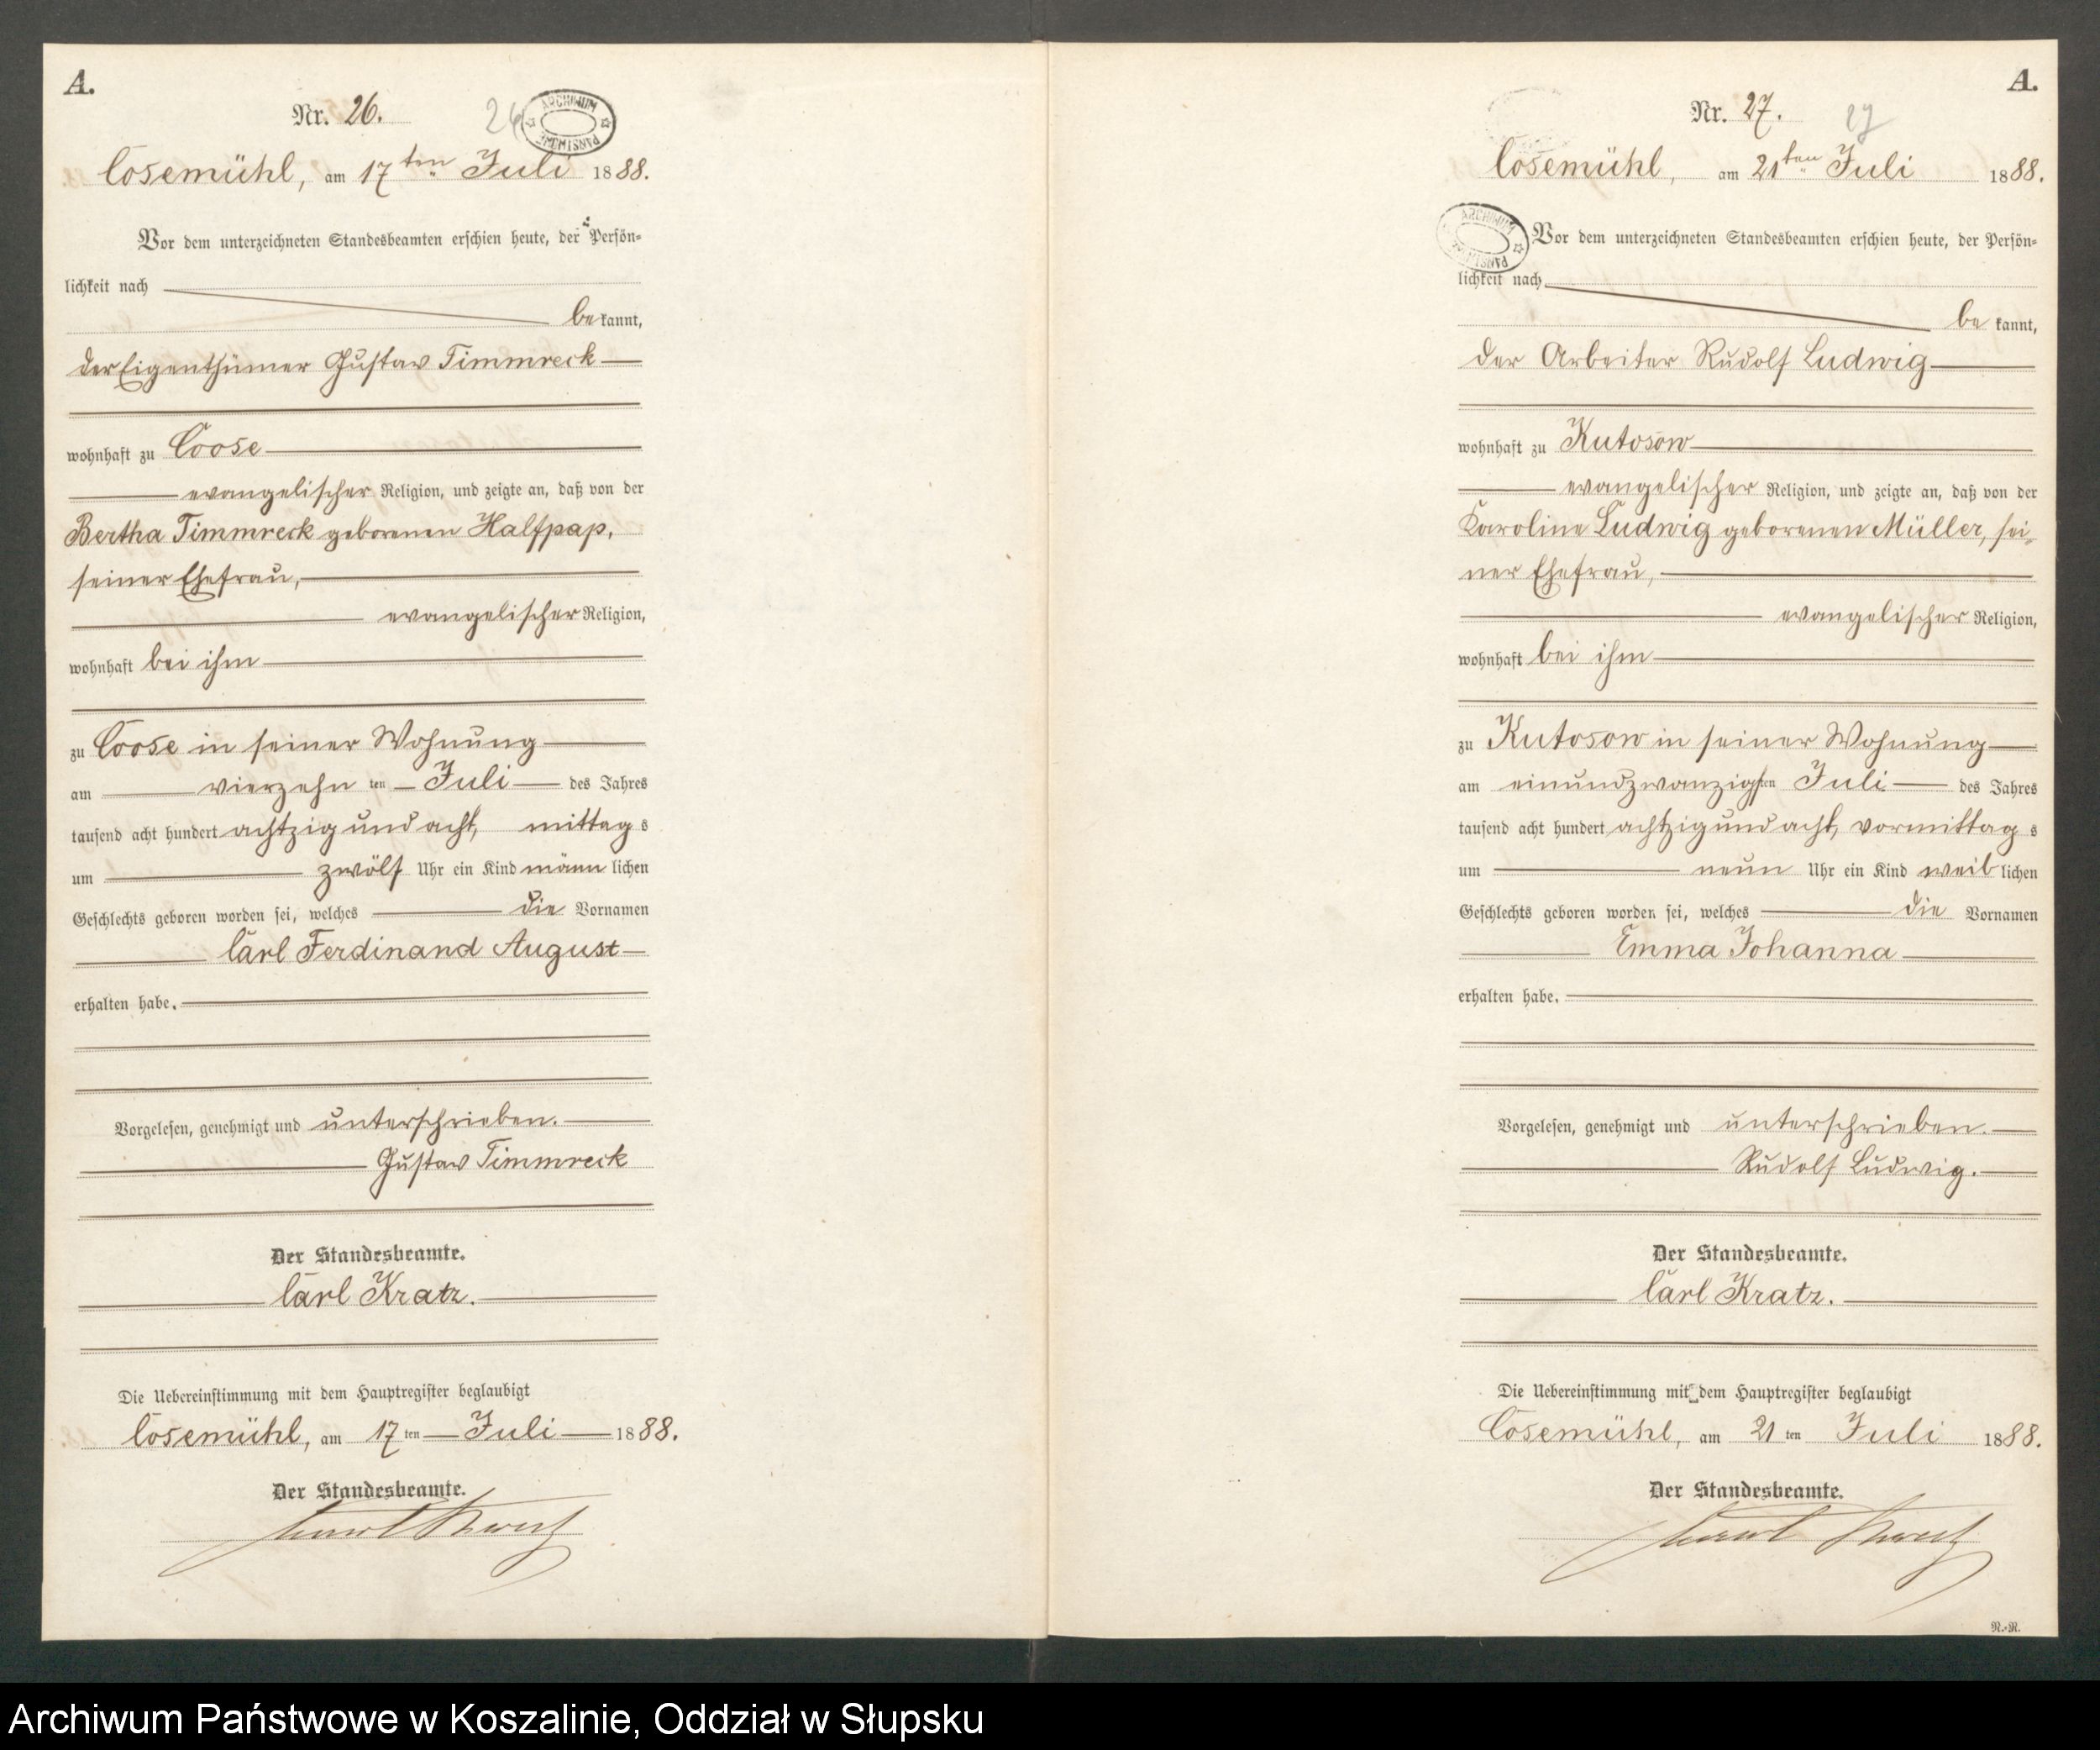 A.
Nr. 26.
26
ARCHIWUM PAŃSTWOWE
Cosemühl, am 17ten Juli 1888.
Vor dem unterzeichneten Standesbeamten erschien heute, der Persön-
lichkeit nach
bekannt,
der Eigenthümer Gustav Timmreck
wohnhaft zu Coose
evangelischer Religion, und zeigte an, daß von der
Bertha Timmreck geborenen Halfpap,
seiner Ehefrau,
evangelischer Religion,
wohnhaft bei ihm
zu Coose in seiner Wohnung
am vierzehn ten Juli des Jahres
tausend acht hundert achtzig und acht, mittag s
um zwölf Uhr ein Kind männ lichen
Geschlechts geboren worden sei, welches die Vornamen
Carl Ferdinand August
erhalten habe.
Vorgelesen, genehmigt und unterschrieben.
Gustav Timmreck
Der Standesbeamte.
Carl Kratz.
Die Uebereinstimmung mit dem Hauptregister beglaubigt
Cosemühl, am 17 ten Juli 1888.
Der Standesbeamte.
Carl Kratz
A.
Nr. 27.
27
Cosemühl, am 21ten Juli 1888.
ARCHIWUM PAŃSTWOWE
Vor dem unterzeichneten Standesbeamten erschien heute, der Persön-
lichkeit nach
be kannt,
der Arbeiter Rudolf Ludwig
wohnhaft zu Kutosow
evangelischer Religion, und zeigte an, daß von der
Karoline Ludwig geborenen Müller, sei-
ner Ehefrau,
evangelischer Religion,
wohnhaft bei ihm
zu Kutosow in seiner Wohnung
am einundzwanzigsten Juli des Jahres
tausend acht hundert achtzig und acht, vormittag s
um neun Uhr ein Kind weib lichen
Geschlechts geboren worden sei, welches die Vornamen
Emma Johanna
erhalten habe.
Vorgelesen, genehmigt und unterschrieben.
Rudolf Ludwig.
Der Standesbeamte.
Carl Kratz.
Die Uebereinstimmung mit dem Hauptregister beglaubigt
Cosemühl, am 21 ten Juli 1888.
Der Standesbeamte.
Carl Kratz
N.-N.
Archiwum Państwowe w Koszalinie, Oddział w Słupsku